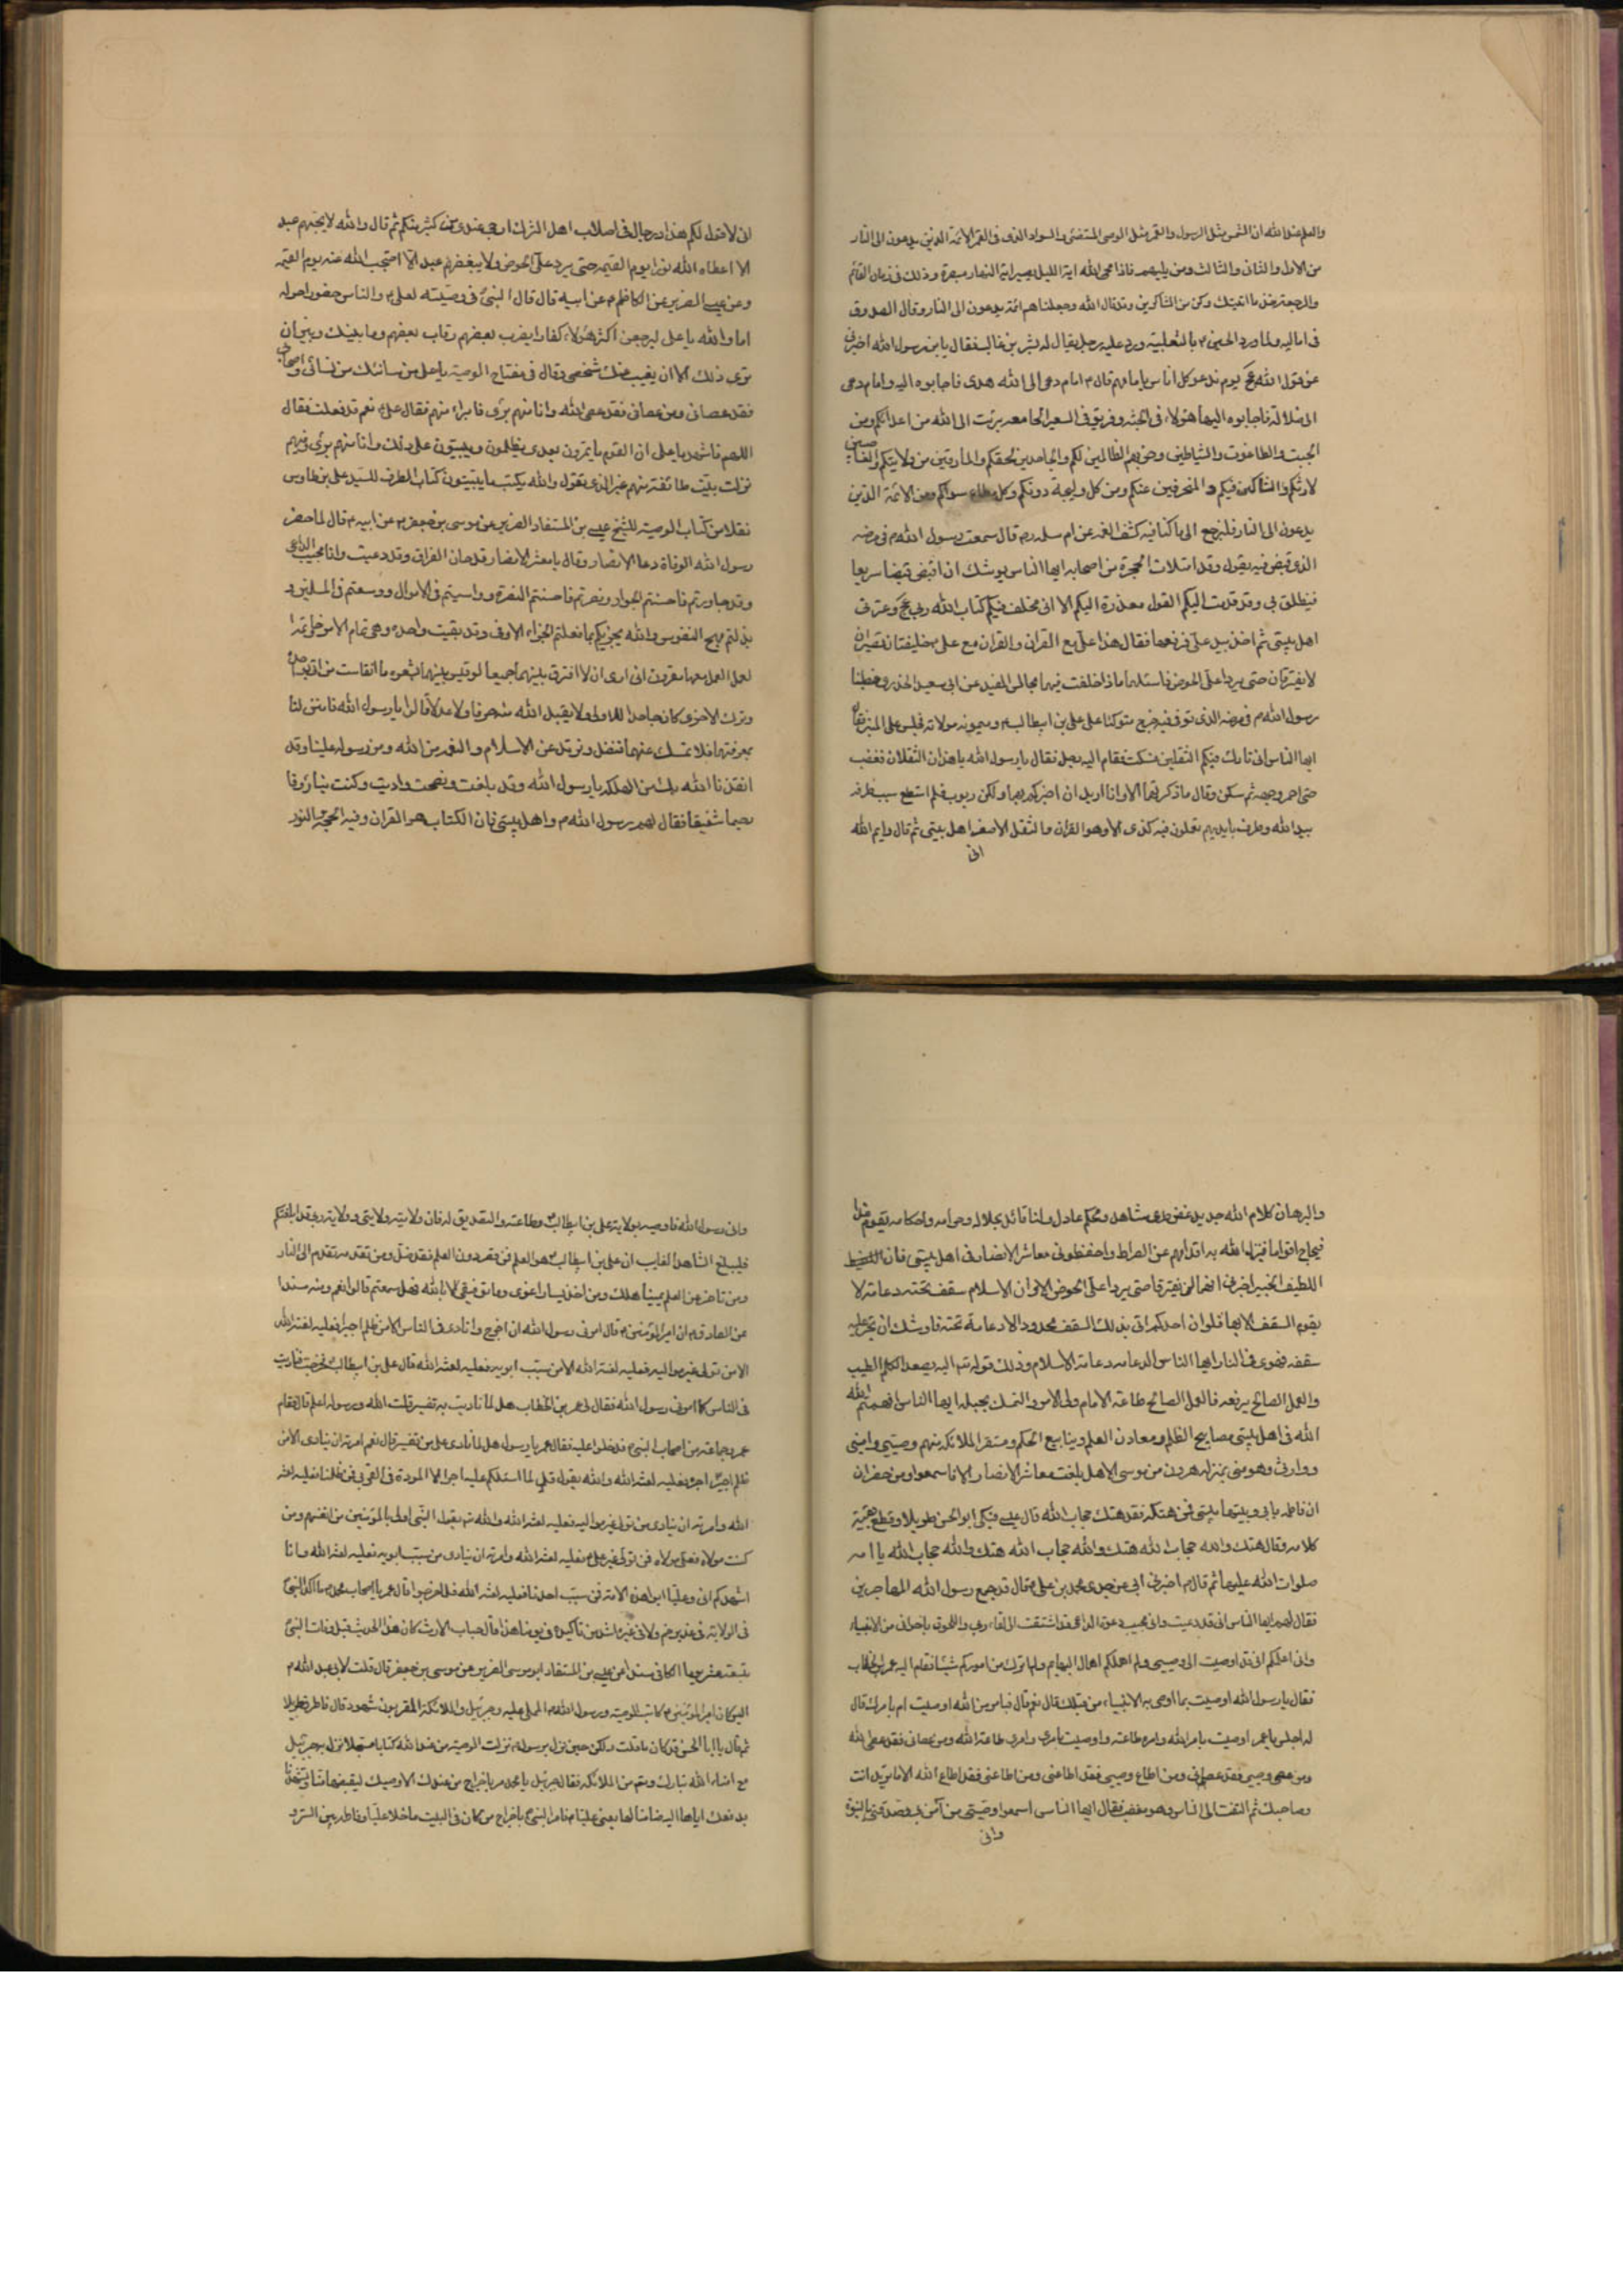 والعلم عند الله ان الشمس مثل الرسول والقمر مثل الوصى المستضئ والسواد الذى فى القمر الائمة الذين يدعون الى النار
من الاول والثانى والثالث ومن يليهم فاذا محى الله اية الليل يصير اية النهار مبصرة وذلك فى زمان القائم
والرجعة فخذ ما اتيتك وكن من الشاكرين وقد قال الله وجعلناهم ائمة يدعون الى النار وقال الصدوق
فى اماليه ولما ورد الحسين م بالثعلبية ورد عليه رجل يقال له بشر بن غالب فقال يابن رسول الله اخبرنى
عن قول الله عج يوم ندعو كل اناس بامامهم قال م امام دعى الى الله هدى فاجابوه اليه وامام دعى
الى ضلالة فاجابوه اليها هؤلاء فى الجنة وفريق فى السعير الجامعه برئت الى الله من اعدائكم ومن
الجبت والطاغوت والشياطين وحزبهم الظالمين لكم والجاحدين لحقكم والمارقين من ولايتكم والغاصبين
لارثكم والشاكين فيكم والمنحرفين عنكم ومن كل وليجة دونكم وكل مطاع سواكم ومن الائمة الذين
يدعون الى النار فلنرجع الى ما كنا فيه كشف الغمه عن ام سلمه قال سمعت رسول الله م فى مرضه
الذى قبض فيه يقول وقد امتلات الحجرة من اصحابه ايها الناس يوشك ان اقبض قبضا سريعا
فينطلق بى وقد قدمت اليكم القول معذرة اليكم الا انى مخلف فيكم كتاب الله ربى عج وعترتى
اهل بيتى ثم اخذ بيد على فرفعها فقال هذا على مع القران والقران مع على خليفتان نصيران
لا يفترقان حتى يردا على الحوض فاسئلهما ماذا خلفت فيهما مجالس المفيد عن ابى سعيد الخدرى خطبنا
رسول الله م فى مرضه الذى توفى فيه خرج متوكئا على على بن ابيطالب م وميمونه مولاته فجلس على المنبر فقال
ايها الناس انى تارك فيكم الثقلين فسكت فقام اليه رجل فقال يا رسول الله ما هذان الثقلان فغضب
حتى احمر وجهه ثم سكن وقال ما ذكرتهما الا وانا اريد ان اخبركم بهما ولكن ربوت فلم استطع سبب طرفه
بيد الله وطرف بايديهم تعملون فيه كذى الا وهو القران والثقل الاصغر اهل بيتى ثم قال وايم الله
انى
انى لاقول لكم هذا ورجال فى اصلاب اهل الشرك ارجى عندى من كثير منكم ثم قال والله لا يحبهم عبد
الا اعطاه الله نورا يوم القيمه حتى يرد على الحوض ولا يبغضهم عبد الا احتجب الله عنه يوم القيمه
وعن عيسى الضرير عن الكاظم م عن ابيه قال قال النبى فى وصيته لعلى م والناس حضور حوله
اما والله يا على ليرجعن اكثر هؤلاء كفارا يضرب بعضهم رقاب بعضهم وما بينك وبين ان
ترى ذلك الا ان يغيب عنك شخصى وقال فى مفتاح الوصية يا على من شانئك من نسائى واصحابى
فقد عصانى ومن عصانى فقد عصى الله وانا منهم برئ فابرا منهم فقال على م نعم قد فعلت فقال
اللهم فاشهد يا على ان القوم ياتمرون بعدى يظلمون ويبيتون على ذلك وانا منهم برئ وفيهم
نزلت بيت طائفة منهم غير الذى تقول والله يكتب ما يبيتون كتاب الطرف للسيد على بن طاوس
نقلا من كتاب الوصية للشيخ عيسى بن المستفاد الضرير عن موسى بن جعفر م عن ابيه م قال لما حضر
رسول الله الوفاة دعا الانصار وقال يا معشر الانصار قد حان الفراق وقد دعيت وانا مجيب الداعى
وقد جاورتم فاحسنتم الجوار ونصرتم فاحسنتم النصرة وواسيتم فى الاموال ووسعتم فى المسلمين و
بذلتم مهج النفوس والله يجزيكم بما فعلتم الجزاء الاوفى وقد بقيت واحدة وهى تمام الامر وخاتمة
العمل العمل معها مقرون انى ارى ان لا افترق بينهما جميعا لو قيس بينهما بشعره ما انقاست من اتى بواحدة
وترك الاخرى كان جاحدا للاولى ولا يقبل الله منه صرفا ولا عدلا قالوا يا رسول الله فابن لنا
بمعرفتها فلا نمسك عنها فنضل ونرتد عن الاسلام والنعمة من الله ومن رسوله علينا وقد
انقذنا الله بك من الهلكه يا رسول الله وقد بلغت ونصحت واديت وكنت بنا رؤفا
رحيما شفيقا فقال لهم رسول الله م كتاب الله واهل بيتى فان الكتاب هو القران وفيه الحجه والنور
والبرهان كلام الله جديد غض طرى شاهد ومحكم عادل ولنا قائد بحلاله وحرامه واحكامه يقوم غدا
فيحاج اقواما فيزل الله به اقدامهم عن الصراط واحفظونى معاشر الانصار فى اهل بيتى فان
اللطيف الخبير اخبرنى انهما لن يفترقا حتى يردا على الحوض الا وان الاسلام سقف تحته دعامة لا
يقوم السقف الا بها فلو ان احدكم اتى بذلك السقف ممدودا لا دعامة تحته فاوشك ان يخر عليه
سقفه فهوى فى النار ايها الناس الدعامه دعامة الاسلام وذلك قوله تع اليه يصعد الكلم الطيب
والعمل الصالح يرفعه فالعمل الصالح طاعة الامام ولى الامر والتمسك بحبله ايها الناس افهمتم الله
الله فى اهل بيتى مصابيح الظلم ومعادن العلم وينابيع الحكم ومستقر الملائكه منهم وصيى وامينى
ووارثى وهو منى بمنزله هرون من موسى الا هل بلغت معاشر الانصار الا فاسمعوا ومن حضر ان
ان فاطمه بابها بابى وبيتها بيتى فمن هتكه فقد هتك حجاب الله قال عيسى فبكى ابو الحسن طويلا وقطع بقية
كلامه وقال هتك والله حجاب الله هتك والله حجاب الله هتك والله حجاب الله يا امه
صلوات الله عليها ثم قال م اخبرنى ابى عن جدى محمد بن على م قال قد جمع رسول الله المهاجرين
فقال لهم ايها الناس انى قد دعيت وانى مجيب دعوة الداعى قد اشتقت الى لقاء ربى واللحوق باخوانى من الانبياء
وانى اعلمكم انى قد اوصيت الى وصيى ولم اهملكم اهمال البهايم ولم اترك من اموركم شيئا فقام اليه عمر بن الخطاب
فقال يا رسول الله اوصيت بما اوصى به الانبياء من قبلك قال نعم قال فبامر من الله اوصيت ام بامرك قال
له اجلس يا عمر اوصيت بامر الله وامره طاعته واوصيت بامرى وامرى طاعة الله ومن عصانى فقد عصى الله
ومن عصى وصيى فقد عصانى ومن اطاع وصيى فقد اطاعنى ومن اطاعنى فقد اطاع الله الا ما تريد انت
وصاحبك ثم التفت الى الناس وهو مغضب فقال ايها الناس اسمعوا وصيتى من آمن بى وصدقنى بالنبوة
وانى
وانى رسول الله فاوصيه بولاية على بن ابيطالب وطاعته والتصديق له فان ولايته ولايتى وولاية ربى قد ابلغتكم
فليبلغ الشاهد الغايب ان على بن ابيطالب هو العلم فمن قصر دون العلم فقد ضل ومن تقدمه تقدم الى النار
ومن تاخر عن العلم يمينا هلك ومن اخذ يسارا غوى وما توفيقى الا بالله فهل سمعتم قالوا نعم ومنه مسندا
عن الصادق م ان امير المؤمنين م قال امرنى رسول الله ان اخرج وانادى فى الناس الا من ظلم اجيرا فعليه لعنة الله
الا من تولى غير مواليه فعليه لعنة الله الا من سبب ابويه فعليه لعنة الله قال على بن ابيطالب فخرجت فناديت
فى الناس كما امرنى رسول الله فقال لى عمر بن الخطاب هل لما ناديت به تفسير قلت الله ورسوله اعلم قال فقام
عمر وجماعة من اصحاب النبى فدخلوا عليه فقال عمر يا رسول هل لما نادى على من تفسير قال نعم امرته ان ينادى الا من
ظلم اجيرا اجره فعليه لعنة الله والله يقول قل لا اسئلكم عليه اجرا الا المودة فى القربى فمن ظلمنا فعليه لعنة
الله وامرته ان ينادى من تولى غير مواليه فعليه لعنة الله والله تع يقول النبى اولى بالمؤمنين من انفسهم ومن
كنت مولاه فعلى مولاه فمن تولى غير على م فعليه لعنة الله وامرته ان ينادى من سبب ابويه فعليه لعنة الله وانا
اشهدكم انى وعليا ابوا هذه الامة فمن سبب احدنا فعليه لعنة الله فلما خرجوا قال عمر يا اصحاب محمد ما اكد النبى
فى الولاية فى غدير خم ولا فى غيره اشد من تاكيده فى يومنا هذا قال خباب الارت كان هذا الحديث قبل وفات النبى
بتسعة عشر يوما الكافى مسندا عن عيسى بن المستفاد ابو موسى الضرير عن موسى بن جعفر قال قلت لابى عبد الله م
اليس كان امير المؤمنين م كاتب الوصية ورسول الله م المملى عليه وجبرئيل والملائكة المقربون شهود قال فاطرق طويلا
ثم قال يا ابا الحسن قد كان ما قلت ولكن حين نزل برسول الله م نزلت الوصية من عند الله كتابا مسجلا نزل به جبرئيل
مع امناء الله تبارك وتع من الملائكة فقال جبرئيل يا محمد مر باخراج من عندك الا وصيك ليقبضها منا وتشهدنا
بدفعك اياها اليه ضامنا لها يعنى عليا م فامر النبى باخراج من كان فى البيت ما خلا عليا وفاطمه بين الستر و